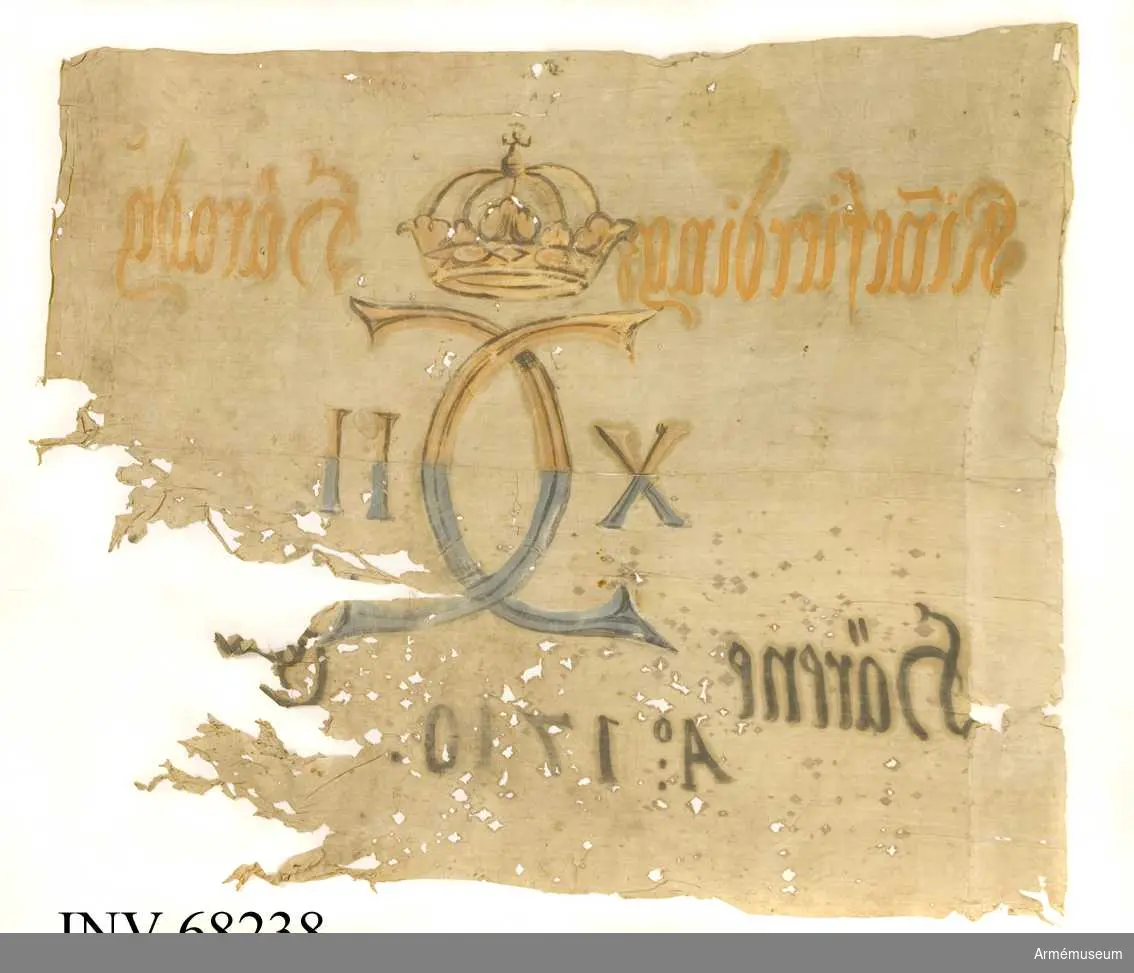 Kiñefierdings Häradz
X II
Härene
A°: 1710.
INV 68238
Armémuseum